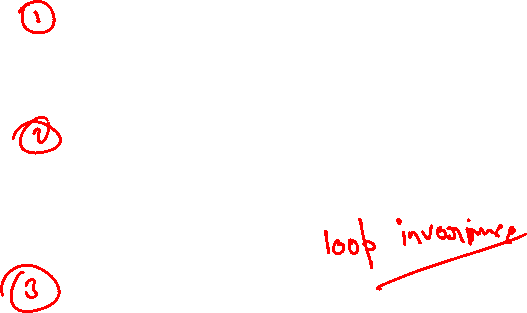 1
2
loop invariance
3